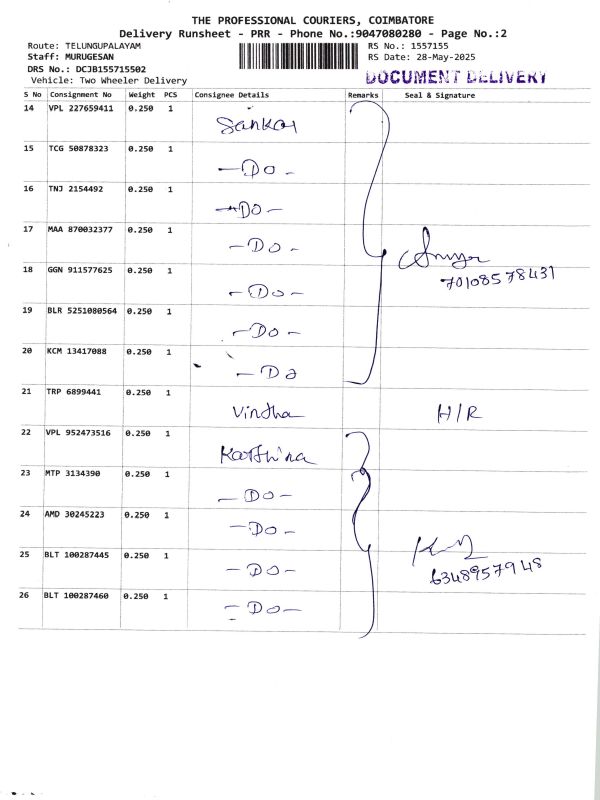 THE PROFESSIONAL COURIERS, COIMBATORE
Delivery Runsheet - PRR - Phone No.:9047080280 - Page No.:2
Route: TELUNGUPALAYAM RS No.: 1557155
Staff: MURUGESAN RS Date: 28-May-2025
DRS No.: DCJB155715502
Vehicle: Two Wheeler Delivery DOCUMENT DELIVERY
S No Consignment No Weight PCS Consignee Details Remarks Seal & Signature
14 VPL 227659411 0.250 1 Sankar
15 TCG 50878323 0.250 1 - Do -
16 TNJ 2154492 0.250 1 - Do -
17 MAA 870032377 0.250 1 - Do -
7010857 8431
18 GGN 911577625 0.250 1 - Do -
19 BLR 5251080564 0.250 1 - Do -
20 KCM 13417088 0.250 1 - Do
21 TRP 6899441 0.250 1 Vindha H/R
22 VPL 952473516 0.250 1
23 MTP 3134390 0.250 1 - Do -
24 AMD 30245223 0.250 1 - Do -
25 BLT 100287445 0.250 1 - Do -
6348957948
26 BLT 100287460 0.250 1 - Do -